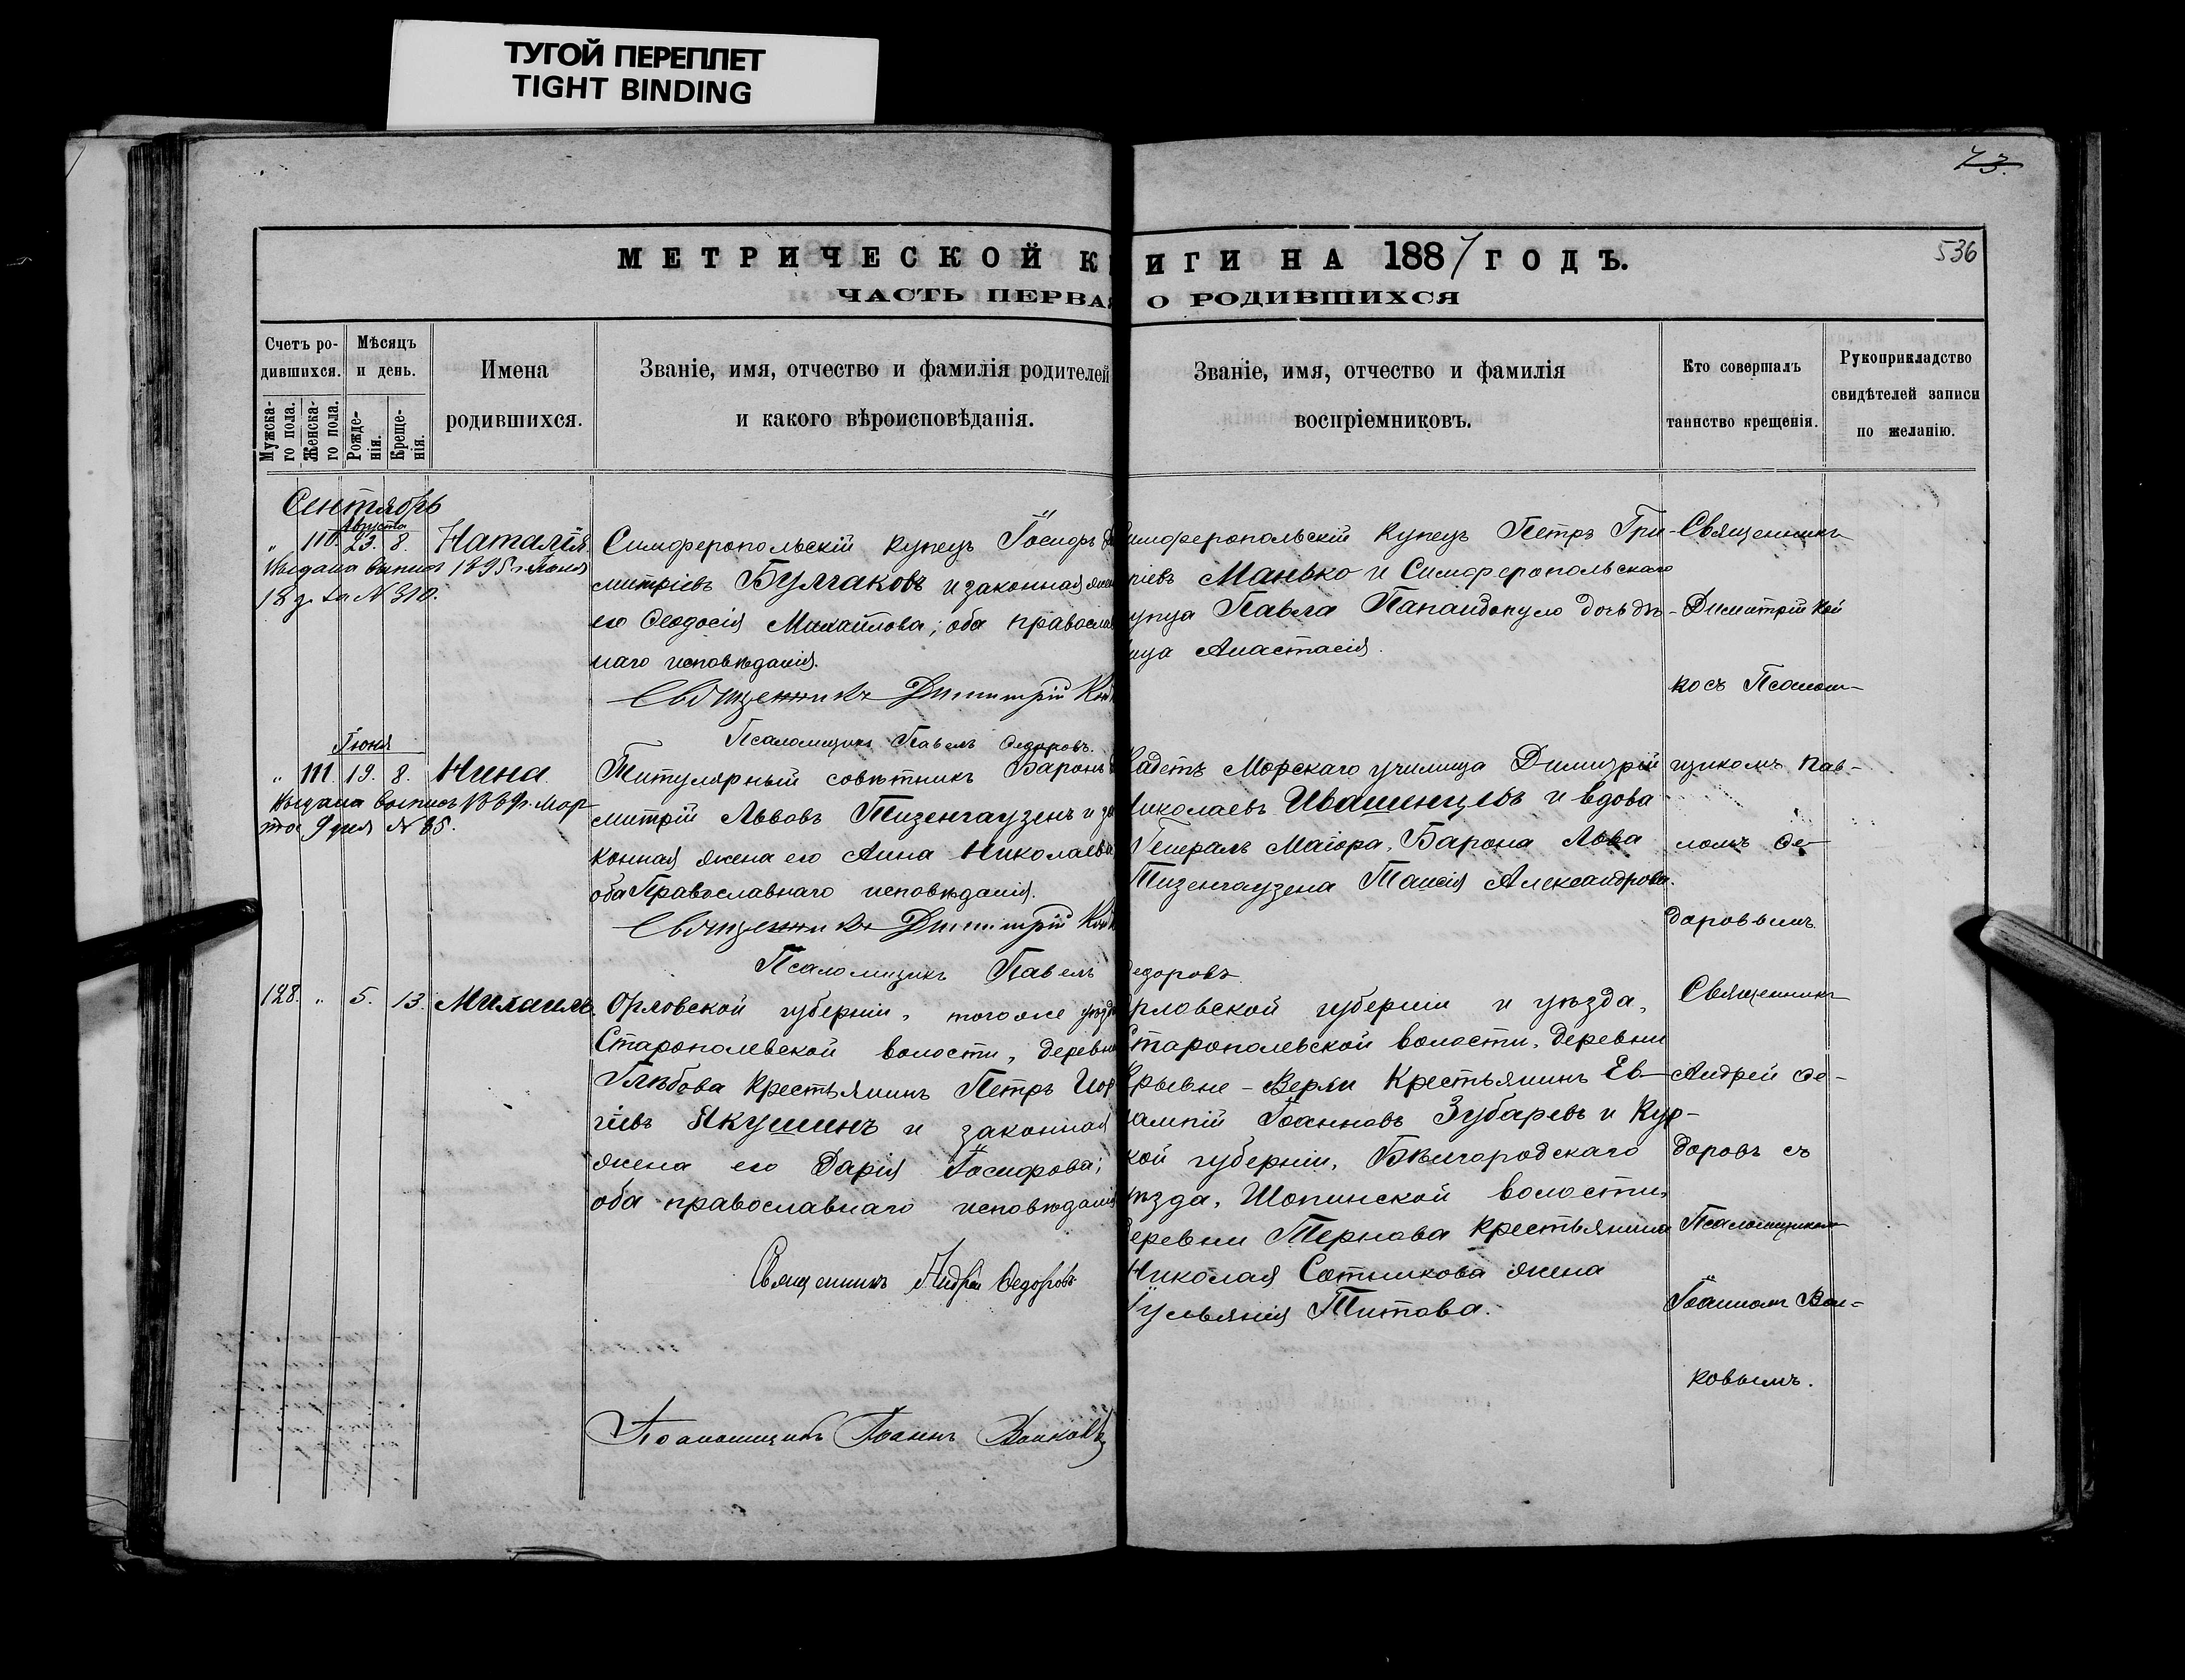 ТУГОЙ ПЕРЕПЛЕТ
TIGHT BINDING
73.
536
МЕТРИЧЕСКОЙ К ИГИ НА 1887 ГОДЪ.
ЧАСТЬ ПЕРВАЯ О РОДИВШИХСЯ
Счетъ ро-
дившихся.
Мужска-
го пола.
Женска-
го пола.
Мѣсяцъ
и день.
Рожде-
нія.
Креще-
нія.
Имена
родившихся.
Званіе, имя, отчество и фамилія родителей
и какого вѣроисповѣданія.
Званіе, имя, отчество и фамилія
воспріемниковъ.
Кто совершалъ
таинство крещенія.
Рукоприкладство
свидѣтелей записи
по желанію.
Сентябрь
Августа
" 110. 23. 8. Наталія.
Выдана выпись 1895 г. Іюня
18 д. за № 310.
Симферопольскій купецъ Іосифъ Ди
митріевъ Булгаковъ и законная жен
его Ѳеодосія Михайлова; оба православ
наго исповѣданія.
Священникъ Димитрій Кой
Псаломщикъ Павелъ Ѳедоровъ.
имферопольскій купецъ Петръ Гри-
ріевъ Манько и Симферопольскаго
упца Павла Папаидопуло дочь дѣ-
ица Анастасія.
Священникъ
Димитрій Кой
косъ Псалом-
щикомъ Пав-
ломъ Ѳе-
доровымъ.
Іюня
" 111. 19. 8. Нина
Выдана выпись 1889 г. Мар-
та 9 дня № 85.
Титулярный совѣтникъ Баронъ
митрій Львовъ Тизенгаузенъ и за
конная жена его Анна Николаева
оба Православнаго исповѣданія.
Священникъ Димитрій Кой
Псаломщикъ Павелъ едоровъ.
Кадетъ Морскаго училища Димитрій
Николаевъ Ивашенцевъ и вдова
Генералъ Маіора, Барона Льва
Тизенгаузена Таисія Александрова.
128. " 5. 13. Михаилъ.
Орловской губерніи, того же уѣзд
Старополевской волости, деревни
Глѣбова крестьянинъ Петръ
гіевъ Якушинъ и законная
жена его Дарія Іосифова;
оба православнаго исповѣданія
Священникъ Андрей Ѳедоровъ
Псаломщикъ Іоаннъ Волковъ
рловской губерніи и уѣзда,
Старополевской волости, деревни
Крестьянинъ Ев-
лампій Іоанновъ Зубаревъ и Кур-
кой губерніи, Бѣлгородскаго
уѣзда, Шопинской волости,
еревни Тернова крестьянина
Николая Сотникова жена
Іульянія Титова.
Священникъ
Андрей Ѳе-
доровъ съ
Псаломщикомъ
Іоанномъ Вол-
ковымъ.